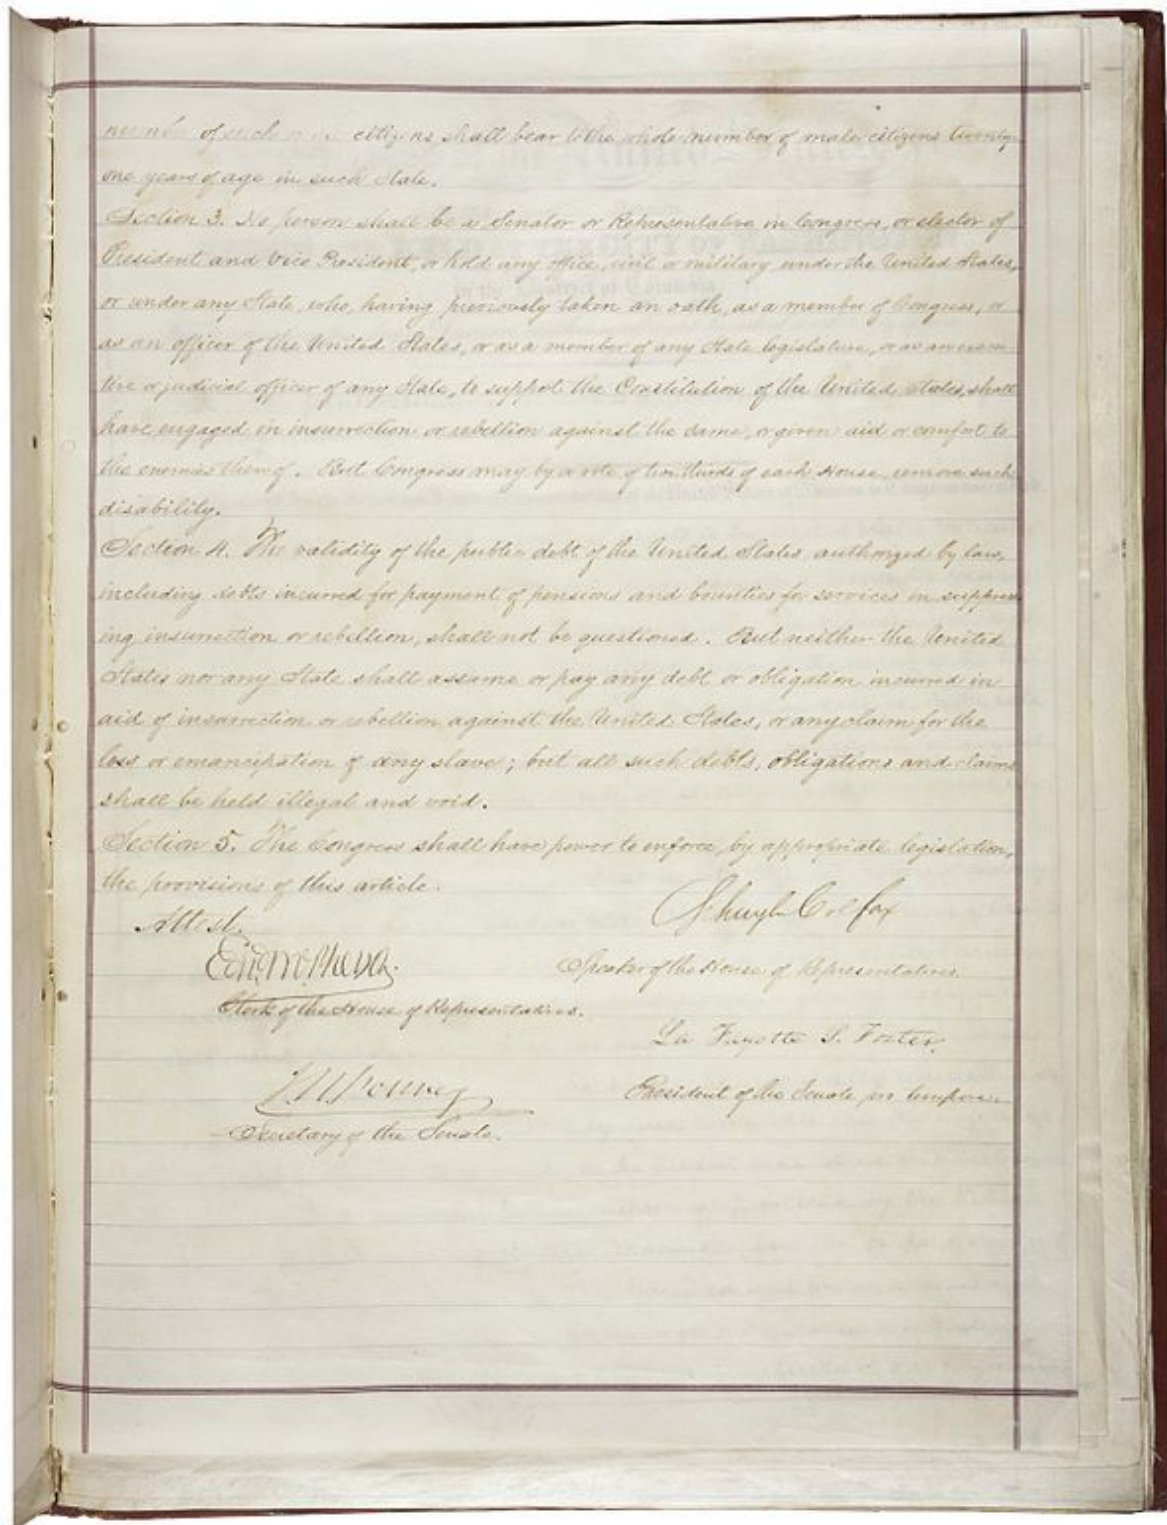 number of such male citizens shall bear to the whole number of male citizens twenty-
one years of age in such State.
Section 3. No person shall be a Senator or Representative in Congress, or elector of
President and Vice President, or hold any office, civil or military, under the United States,
or under any State, who, having previously taken an oath, as a member of Congress, or
as an officer of the United States, or as a member of any State legislature, or as an execu
tive or judicial officer of any State, to support the Constitution of the United States, shall
have engaged in insurrection or rebellion against the same, or given aid or comfort to
the enemies thereof. But Congress may by a vote of two-thirds of each House, remove such
disability.
Section 4. The validity of the public debt of the United States, authorized by law,
including debts incurred for payment of pensions and bounties for services in suppress
ing insurrection or rebellion, shall not be questioned. But neither the United
States nor any State shall assume or pay any debt or obligation incurred in
aid of insurrection or rebellion against the United States, or any claim for the
loss or emancipation of any slave; but all such debts, obligations and claims
shall be held illegal and void.
Section 5. The Congress shall have power to enforce, by appropriate legislation,
the provisions of this article.
Schuyler Colfax
Attest.
Edw. McPherson
Speaker of the House of Representatives.
Clerk of the House of Representatives.
La Fayette S. Foster
President of the Senate pro tempore.
J. W. Forney
Secretary of the Senate.